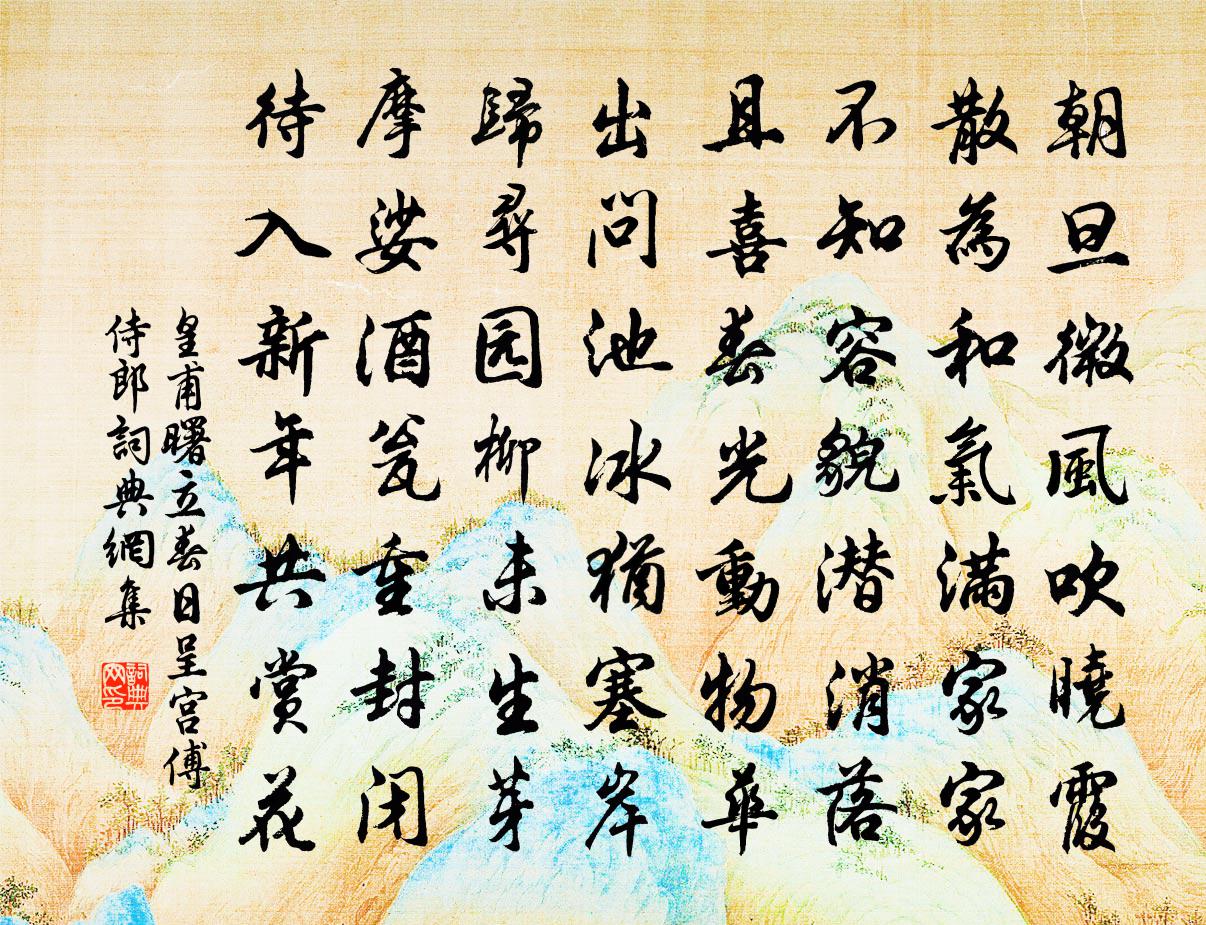 朝旦微風吹曉霞
散為和氣滿家家
不知容貌潜消落
且喜春光動物華
出問池冰猶塞岸
歸尋园柳未生芽
摩娑酒瓮重封闭
待入新年共赏花
皇甫曙立春日呈宮傅
侍郎詞典網集
詞典
网印